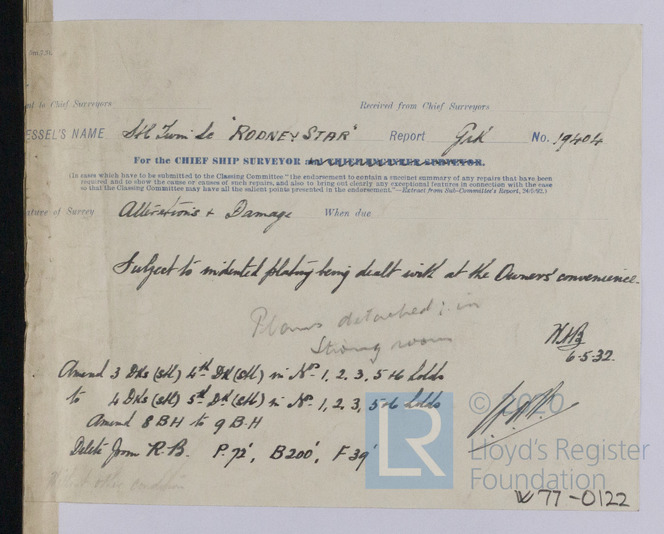 nt to Chief Surveyors Received from Chief Surveyors
ESSEL'S NAME Stl Twin Sc "RODNEY STAR" Report Grk No. 19404
For the CHIEF SHIP SURVEYOR and CHIEF ENGINEER SURVEYOR.
(In cases which have to be submitted to the Classing Committee "the endorsement to contain a succinct summary of any repairs that have been
required and to show the cause or causes of such repairs, and also to bring out clearly any exceptional features in connection with the case
so that the Classing Committee may have all the salient points presented in the endorsement."—Extract from Sub-Committee's Report, 24/5/92.)
ature of Survey Alterations & Damage When due
Subject to indented plating being dealt with at the Owners' convenience.
Plans detached: in
Strong room
6-5-32.
Amend 3 Dks (Stl) 4th Dk (Stl) in Nos 1, 2, 3, 5 & 6 holds
to 4 Dks (Stl) 5th Dk (Stl) in Nos 1, 2, 3, 5 & 6 holds
Amend 8 BH to 9 BH
Delete from R.B. P. 72', B 200', F 39'
© 2020
LR Lloyd's Register
Foundation
W77-0122